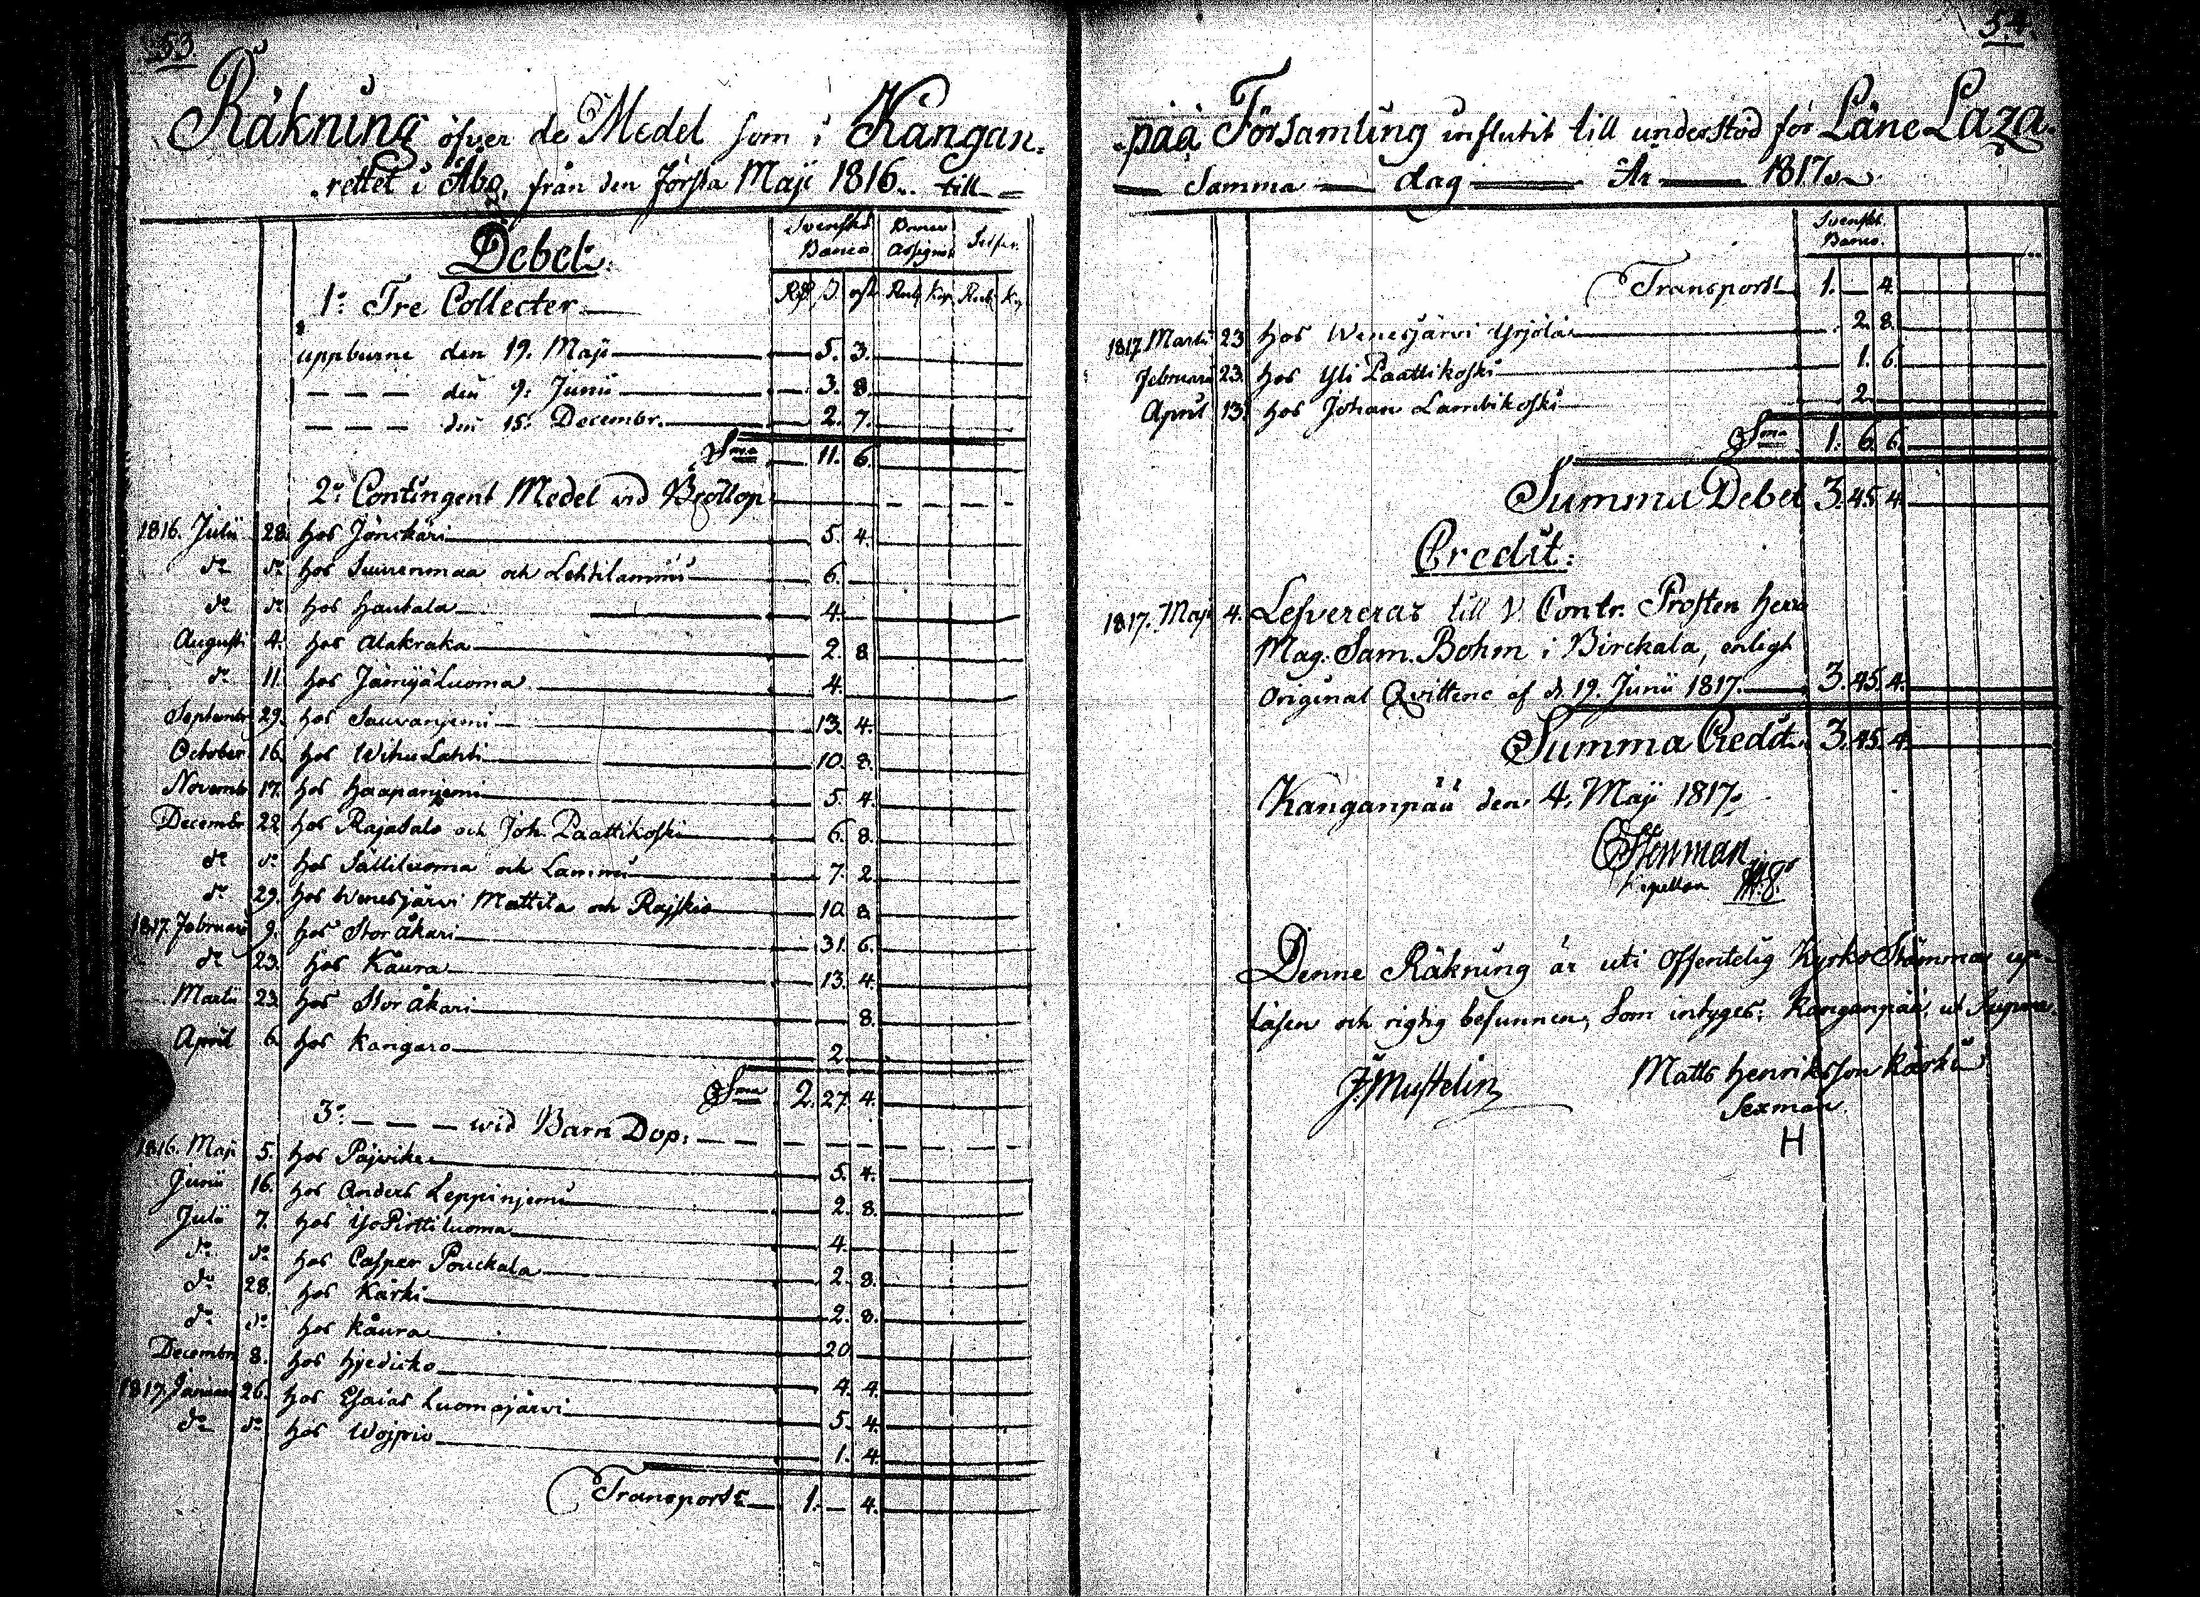 53
Räkning öfver de Medel som i Kangan=
rettet i Åbo, från den första Maji 1816. till
Debet.
Svenskt Banco
Assign:
Rd ß
Rub Kop Rub Kop
1o Tre Collecter
uppburne den 19. Maji 5. 3.
— — — den 9. Junii 3. 8.
— — — den 15. Decembr. 2. 7.
Sma 11. 6.
2o Contingent Medel vid Bröllop
1816. Julii 28. hos Jönckäri 5. 4.
do do hos Suurenmaa och Lehtilammi 6.
do do hos Hautala 4.
Augusti 4. hos Alakraka 2. 8
do 11. hos Jämijäluoma 4.
Septembr 29. hos Sauvanjemi 13. 4.
October 16. hos Wihu Lahti 10. 8.
Novemb 17. hos Haapanjemi 5. 4.
Decembr 22 hos Rajasalo och Joh. Paattikoski 6. 8.
do do hos Sältiluoma och Lammi 7. 2
do 29. hos Wenesjärvi Mattila och Rajskio 10 8
1817. Februari 9. hos Storåkari 31. 6.
do 23. hos Kaura 13. 4.
Martii 23. hos Storåkari 8.
April 6. hos Kangaro 2
Sma 2. 27. 4.
3o — — — wid Barn Dop:
1816. Maji 5. hos Päjvike 5. 4.
Junii 16. hos Anders Leppinjemi 2. 8.
Julii 7. hos Iso Pirttiluoma 4.
do do hos Casper Pouckala 2. 8.
do 28. hos Kärki 2. 8.
do do hos Kaura 20
Decembr 8. hos Hjedicko 4. 4.
1817. Januar 26. hos Esaias Luomajärvi 5. 4.
do do hos Wojpio 1. 4.
Transport 1. — 4.
54.
=pää Församling influtit till understöd för Läne Laza=
Samma dag År 1817
Svenskt Banco.
Transport 1. — 4.
1817. Martii 23 hos Wenesjärvi Yrjölä 2. 8.
Februari 23. hos Yli Paattikoski 1. 6.
April 13. hos Johan Lambikoski 2.
Sma 1. 6. 6.
Summa Debet 3. 45. 4.
Credit:
1817. Maji 4. Lefvereras till V. Contr. Prosten Herr
Mag. Sam. Bohm i Birckala, enligt
Original Qvittence af d. 19. Junii 1817. 3. 45. 4.
Summa Credit. 3. 45. 4.
Kanganpää den 4. Maji 1817.
Stenman
Denne Räkning är uti Offentelig Kyrko Stämma up=
läsen och rigtig befunnen, Som intyges; Kanganpää, ut Supra.
J. Mustelin Matts Henriksson Kärki
Sexman
H